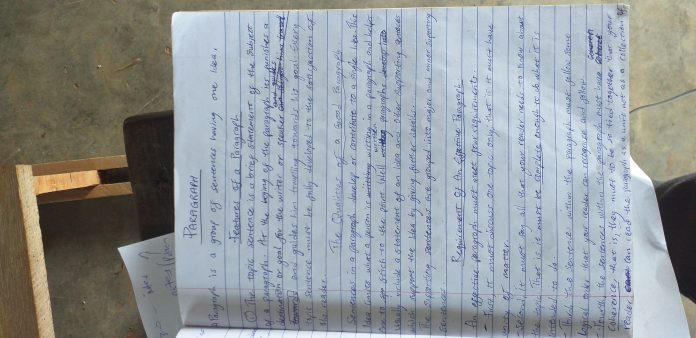 PARAGRAPH
A Paragraph is a group of sentences having one idea.
Features of a Paragraph
① The topic sentence is a brief statement of the subject
of a paragraph. As the topic of the paragraph, it furnishes a
direction or goal for the writer or speaker
guides him travelling towards his goal. Every
sentence must be fully developed to the satisfaction of
the reader.
The Qualities of a Good Paragraph
Sentences in a paragraph develop or contribute to a single idea. This
idea limits what a person is writing in a paragraph and helps
one to stick to the point. Well written paragraphs
usually include a statement of an idea and other supporting sentences
which support the idea by giving further details.
The supporting sentences are grouped into major and minor supporting
sentences.
Requirement of An Effective Paragraph
An effective paragraph must meet four requirements
- First, it must discuss one topic only, that is it must have
unity of matter.
- Second, it must say all that your reader needs to know about
the topic. That is it must be complete enough to do what it is
intended to do
- Third, the sentences within the paragraph must follow some
logical order that your reader can recognise and follow.
- Fourth, the sentences within the paragraph must have Coherence
Coherence, that is, they must be so tied together that your
reader can read the paragraph as a unit not as a collection